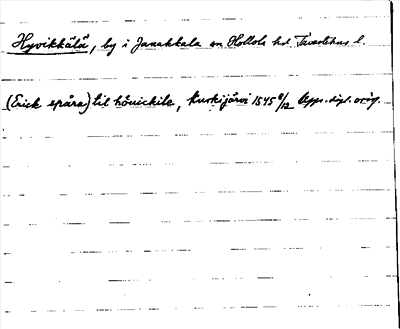 Hyvikkälä, by i Janakkala sn Hollola hd. Tavastehus l.
(Erick spåra) til höuickile, Kurkijärvi 1545 8/12 Upps. dipl. orig.